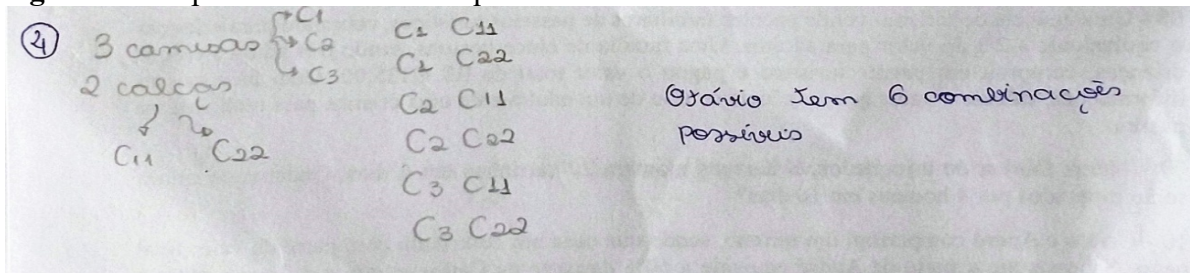 4 3 camisas C1
C2
C3
2 calças
C11 C22
C1 C11
C1 C22
C2 C11
C2 C22
C3 C11
C3 C22
Otávio tem 6 combinações
possíveis